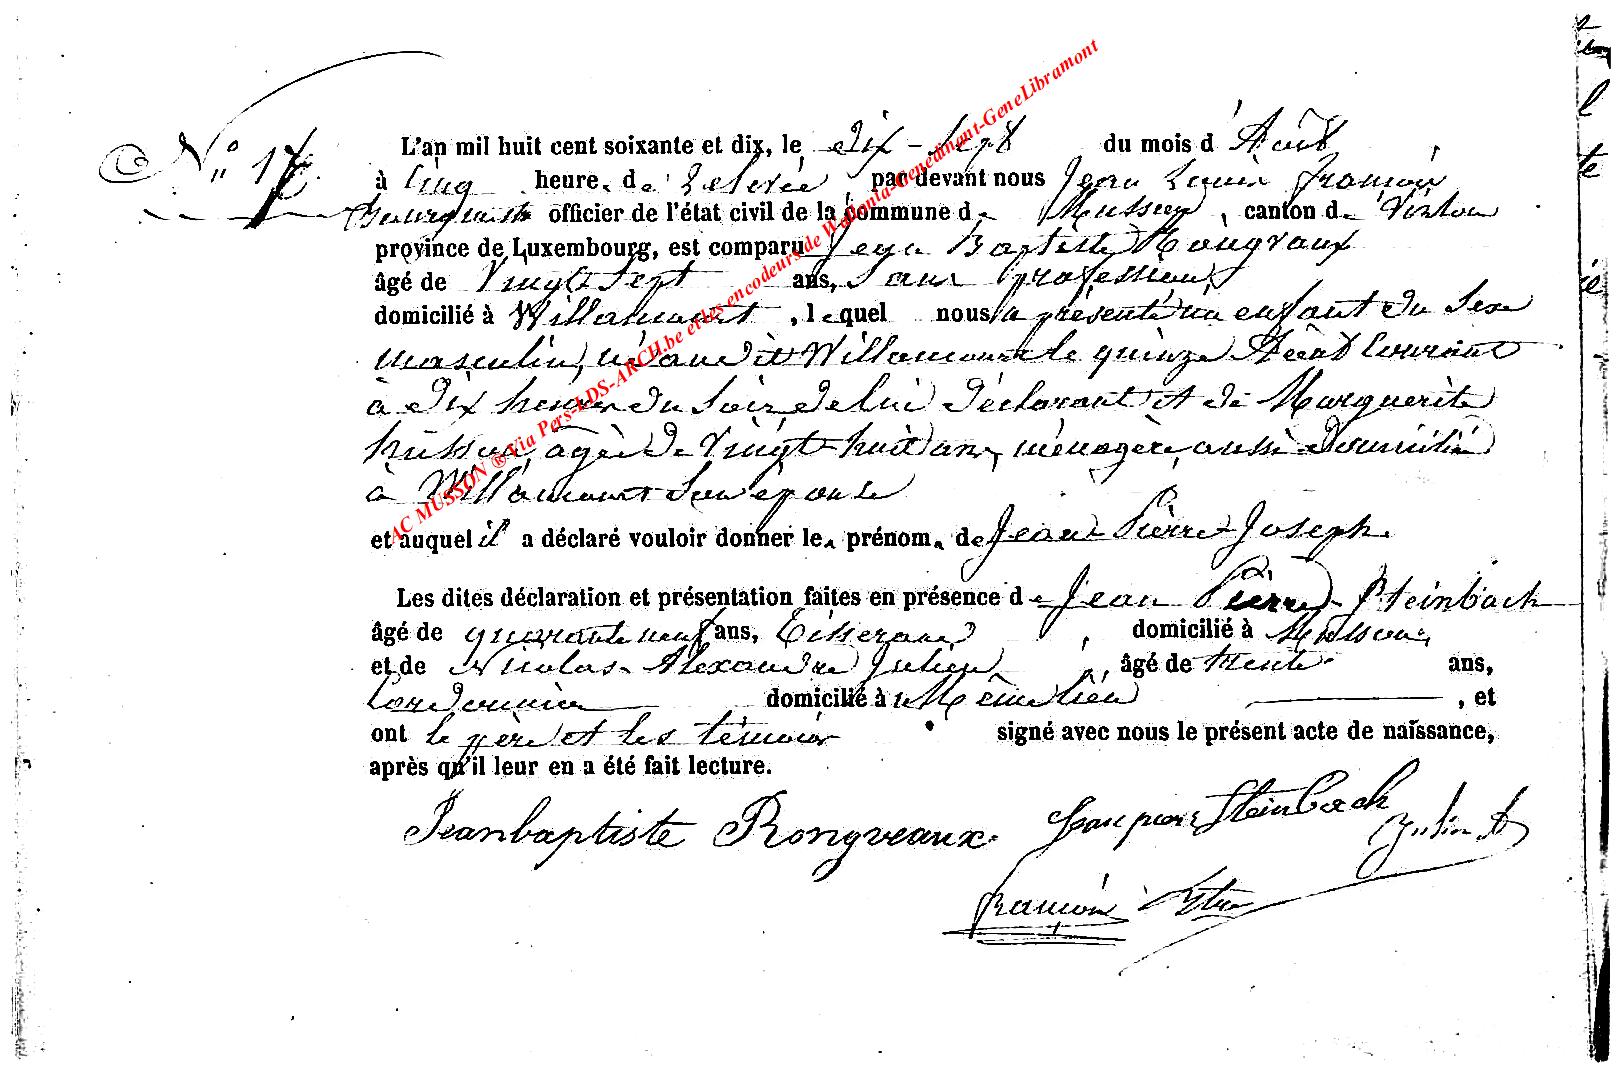 N° 17
L'an mil huit cent soixante et dix, le dix-sept du mois d'Août
à cinq heures de relevée, par devant nous Jean Louis François
bourgmestre officier de l'état civil de la commune de Mussy, canton de Virton
province de Luxembourg, est comparu Jean Baptiste Rongvaux
âgé de Vingt Sept ans, Sans profession
domicilié à Willancourt, lequel nous a présenté un enfant du Sexe
masculin, né au dit Willancourt le quinze Août Courant
à dix heures du Soir, de lui déclarant et de Marguerite
husson, agée de Vingt-huit ans, ménagère, aussi domicilié
à Willancourt Son épouse
et auquel il a déclaré vouloir donner les prénoms de Jean-Pierre-Joseph.
Les dites déclaration et présentation faites en présence de Jean Pierre Steinbach
âgé de quarante neuf ans, Tisserand, domicilié à Musson,
et de Nicolas-Alexandre Julien, âgé de trente ans,
Cordonnier domicilié à, et
ont le père et les témoins signé avec nous le présent acte de naissance,
après qu'il leur en a été fait lecture.
Jeanbaptiste Rongveaux. Jean pierre Steinbach
Julien A
François
AC MUSSON ® Via Pers-LDS-ARCH.be et les encodeurs de Wallonia-Genedinant-GeneLibramont